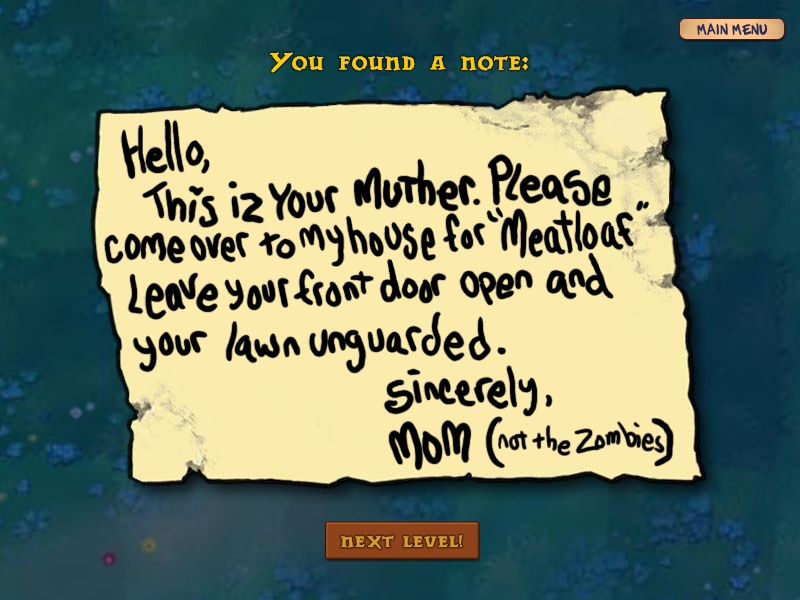 MAIN MENU
You found a note:
Hello,
This iz Your Muther. Please
come over to my house for "Meatloaf"
Leave your front door open and
your lawn unguarded.
Sincerely,
MOM (not the Zombies)
NEXT LEVEL!